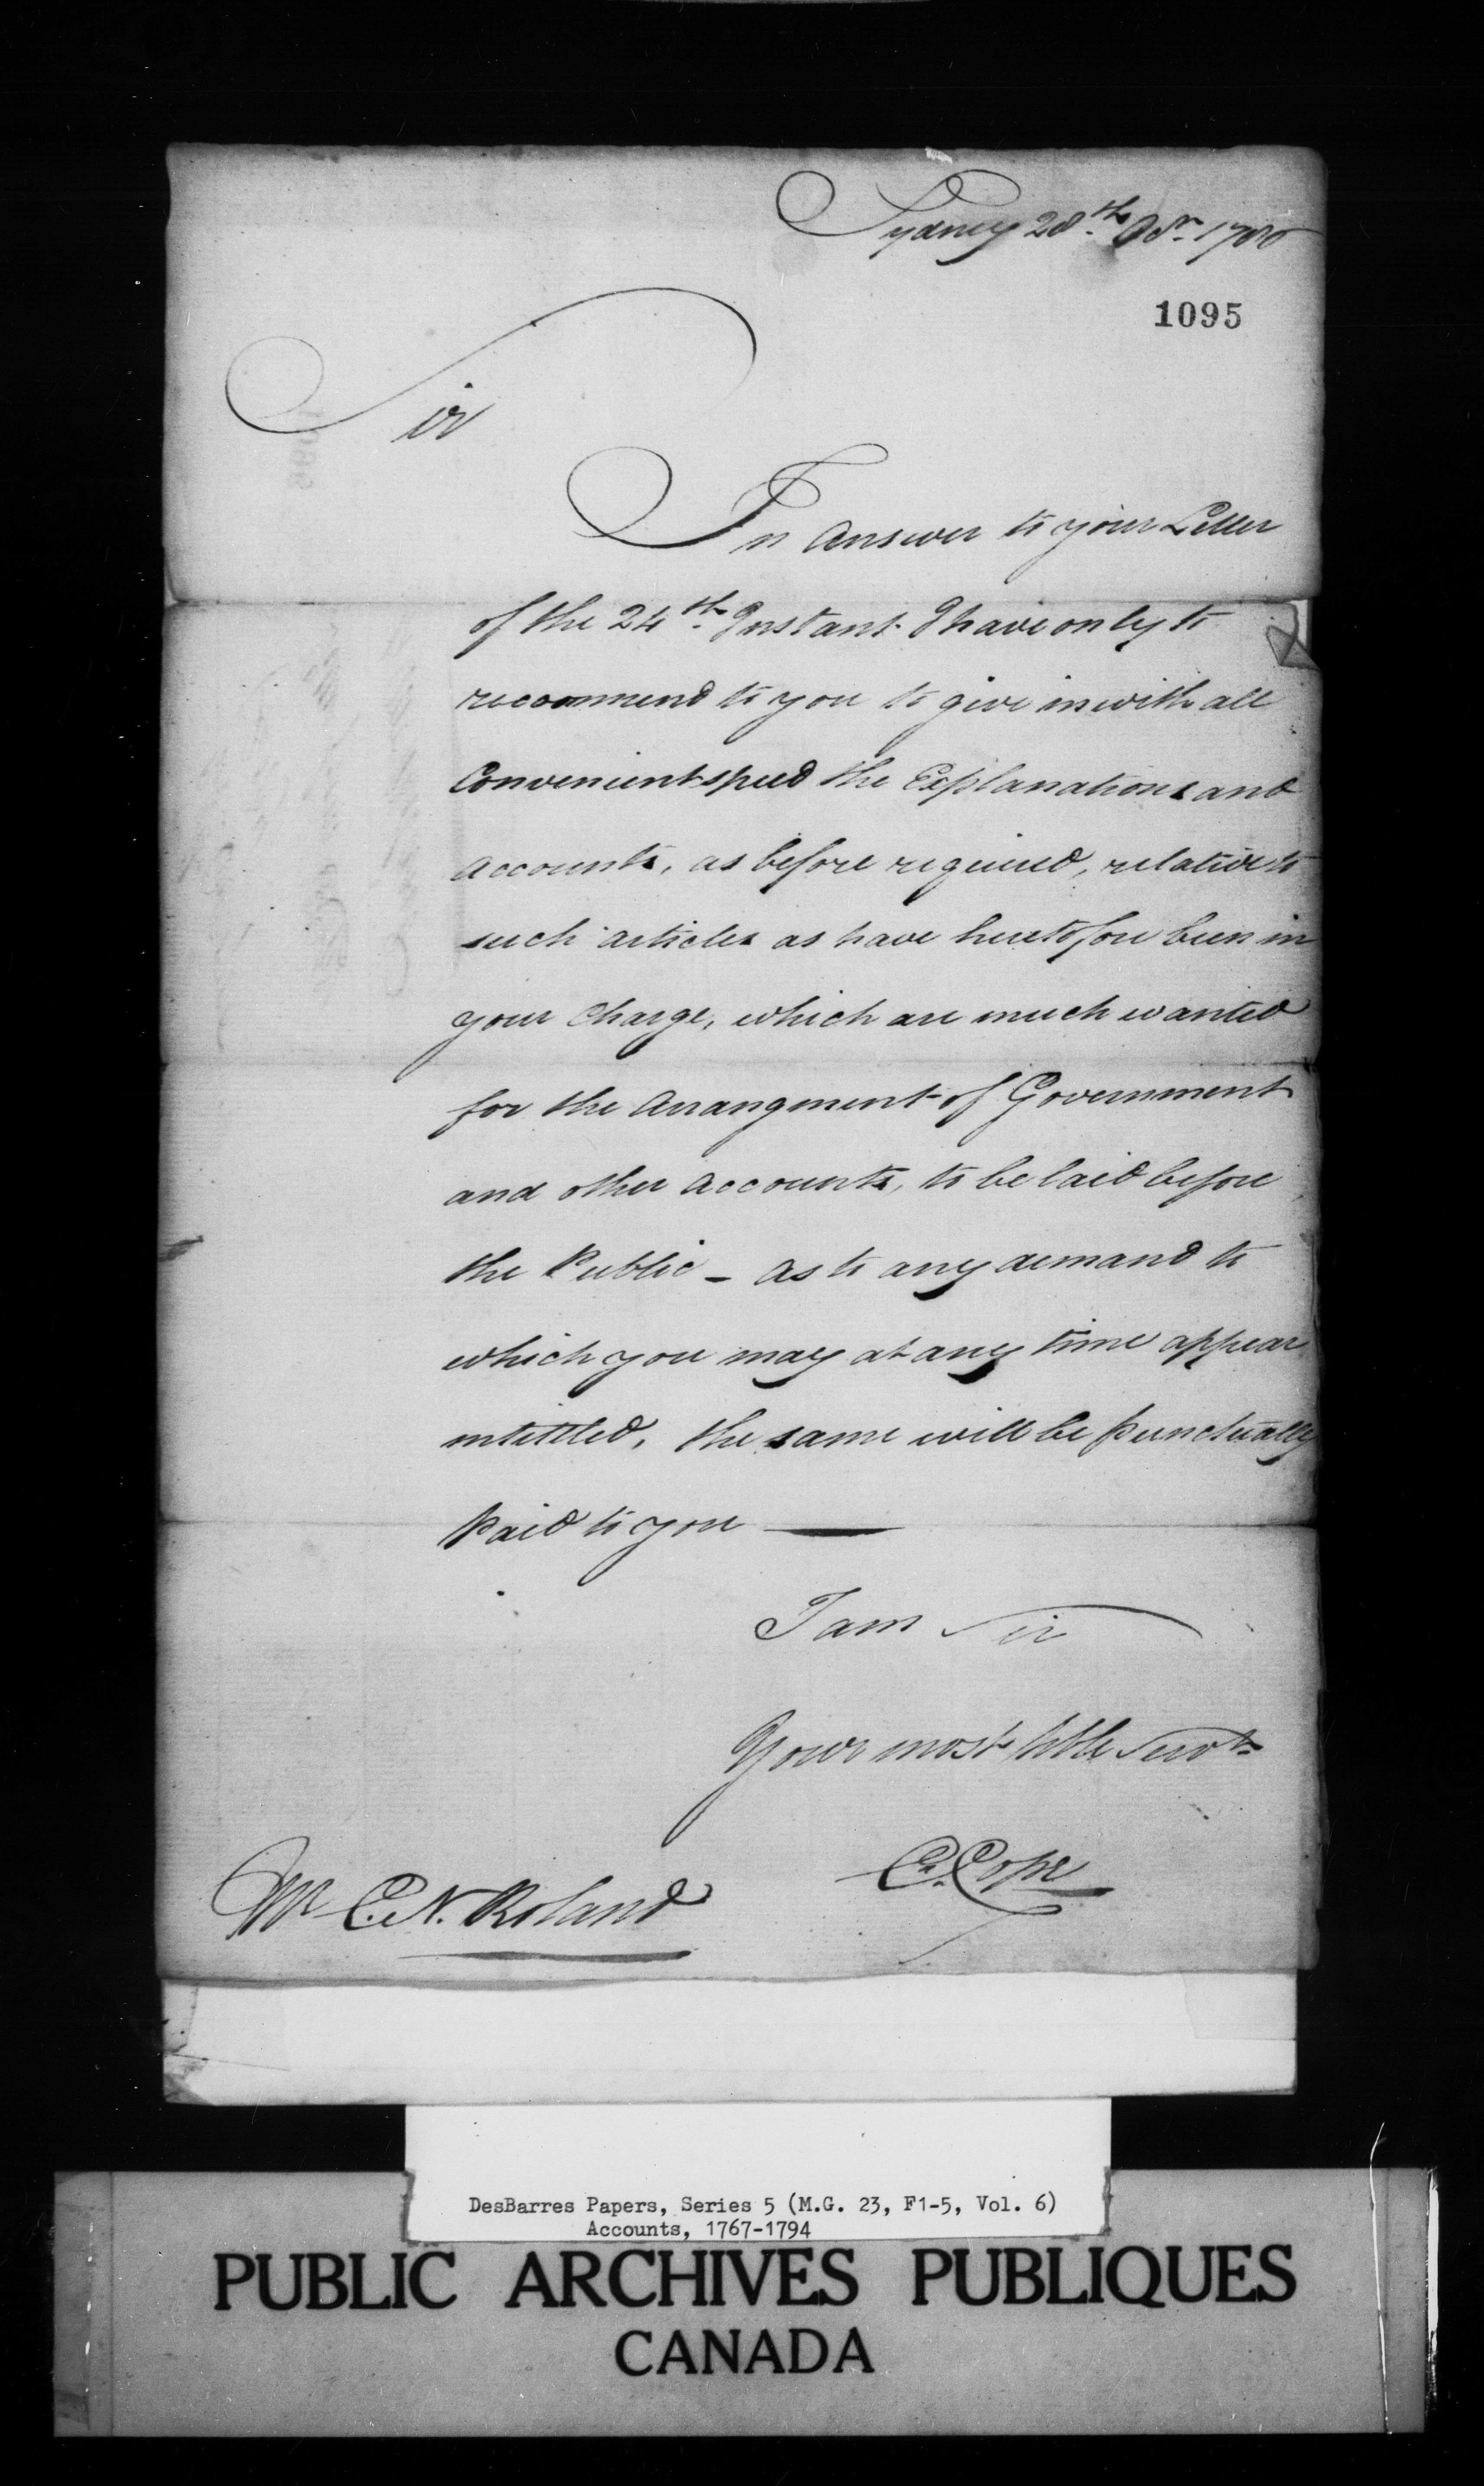 Sydney 28th. 1786
1095
Sir
In Answer to your Letter
of the 24th. Instant I have only to
recommend to you to give in with all
Convenient speed the Explanations and
Accounts, as before required, relative to
such articles as have heretofore been in
your Charge, which are much wanted
for the Arrangment of Government
and other Accounts, to be laid before
the Public – As to any demand to
which you may at any time appear
intittled, the same will be punctually
paid to you —
I am Sir
Your most hble Servt.
C. Cope
Mr C. N. Roland
DesBarres Papers, Series 5 (M.G. 23, F1-5, Vol. 6)
Accounts, 1767-1794
PUBLIC ARCHIVES PUBLIQUES
CANADA